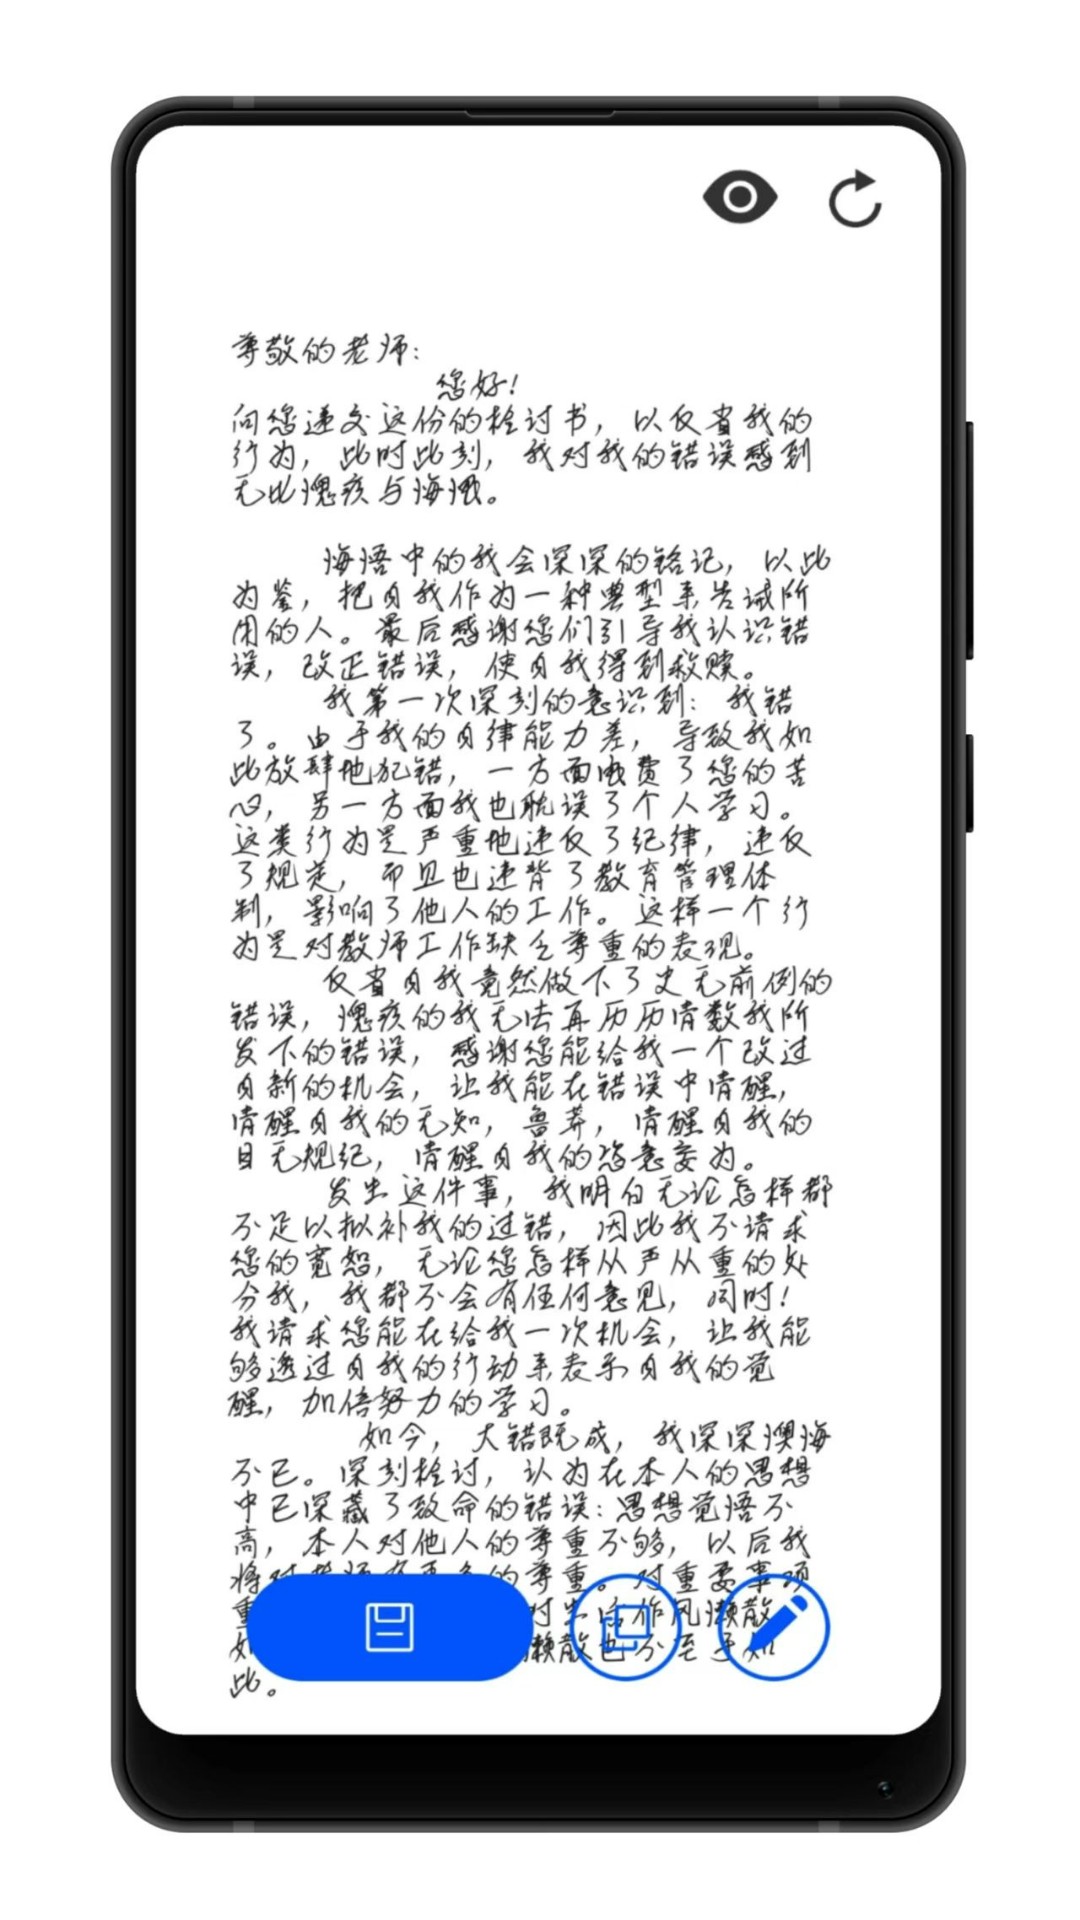 尊敬的老师:
您好!
向您递交这份的检讨书，以反省我的
行为，此时此刻，我对我的错误感到
无比愧疚与悔恨。
悔悟中的我会深深的铭记，以此
为鉴，把自我作为一种典型来告诫所
用的人。最后感谢您们引导我认识错
误，改正错误，使自我得到救赎。
我第一次深刻的意识到: 我错
了。由于我的自律能力差，导致我如
此放肆地犯错，一方面浪费了您的苦
心，另一方面我也耽误了个人学习。
这类行为是严重地违反了纪律，违反
了规定，而且也违背了教育管理体
制，影响了他人的工作。这样一个行
为是对教师工作缺乏尊重的表现。
反省自我竟然做下了史无前例的
错误，愧疚的我无法再历历清数我所
发下的错误，感谢您能给我一个改过
自新的机会，让我能在错误中清醒，
清醒自我的无知，鲁莽，清醒自我的
目无规纪，清醒自我的恣意妄为。
发生这件事，我明白无论怎样都
不足以拟补我的过错，因此我不请求
您的宽恕，无论您怎样从严从重的处
分我，我都不会有任何意见，同时!
我请求您能在给我一次机会，让我能
够透过自我的行动来表示自我的觉
醒，加倍努力的学习。
如今，大错既成，我深深懊悔
不已。深刻检讨，认为在本人的思想
中已深藏了致命的错误: 思想觉悟不
高，本人对他人的尊重不够，以后我
将对老师有更多的尊重。对重要事项
重 对生活作风懒散
如 懒散也不至于如
此。